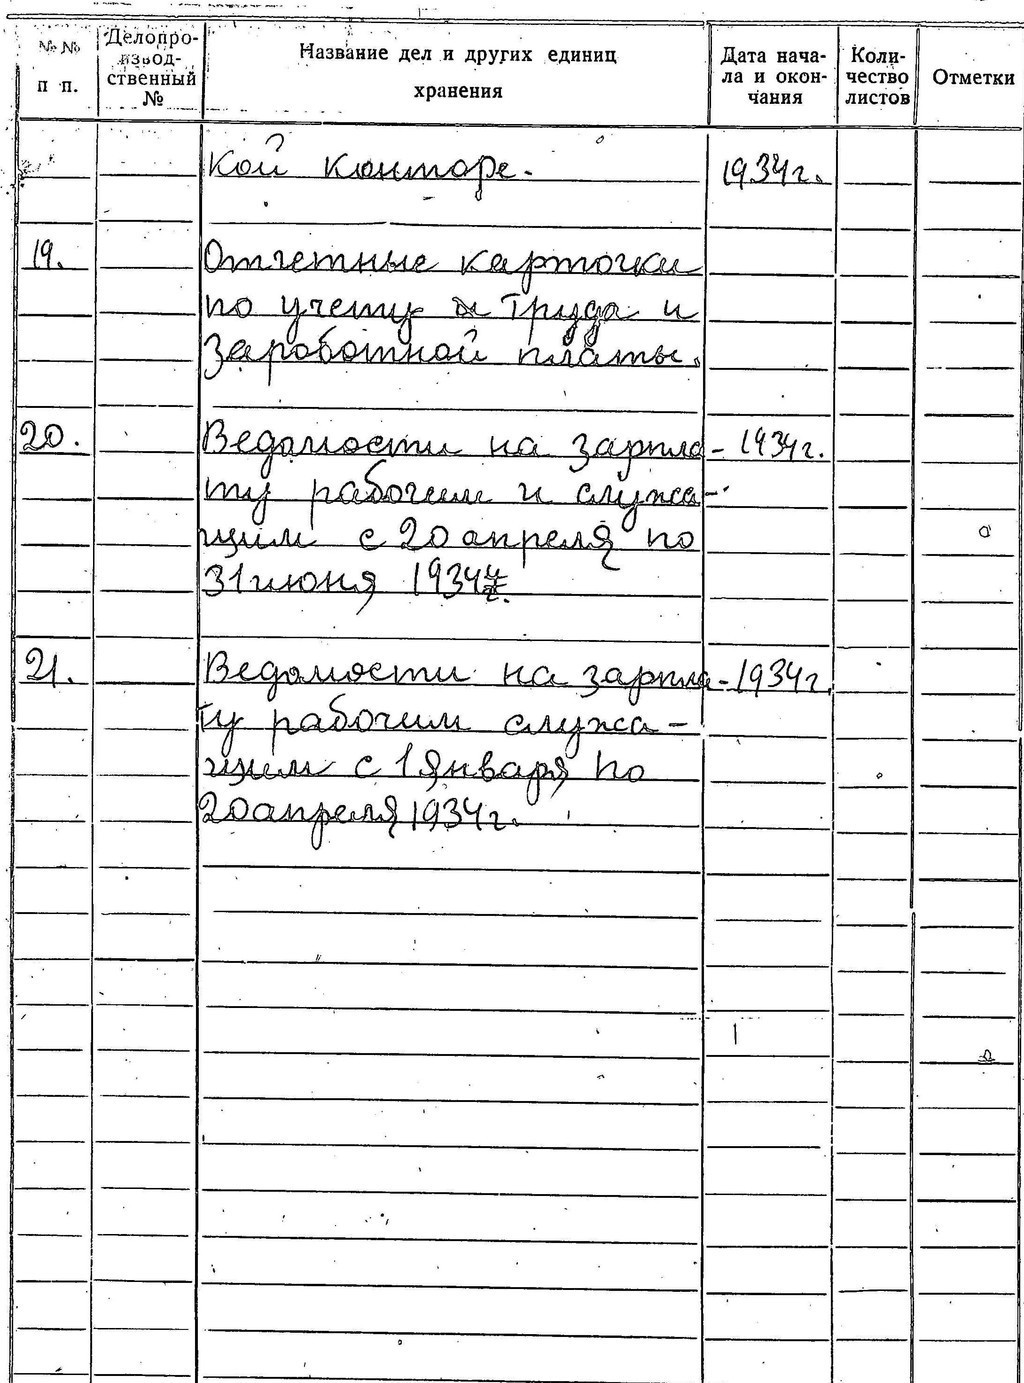 № № п п.
Делопро-
извод-
ственный
№
Название дел и других единиц
хранения
Дата нача-
ла и окон-
чания
Коли-
чество
листов
Отметки
кой конторе. 1934 г.
19. Отчетные карточки
по учету труда и
Заработной платы.
20. Ведомости на зарпла- 1934 г.
ту рабочим и служа-
щим с 20 апреля по
31 июня 1934 г.
21. Ведомости на зарпла- 1934 г.
ту рабочим служа-
щим с 1 января по
20 апреля 1934 г.